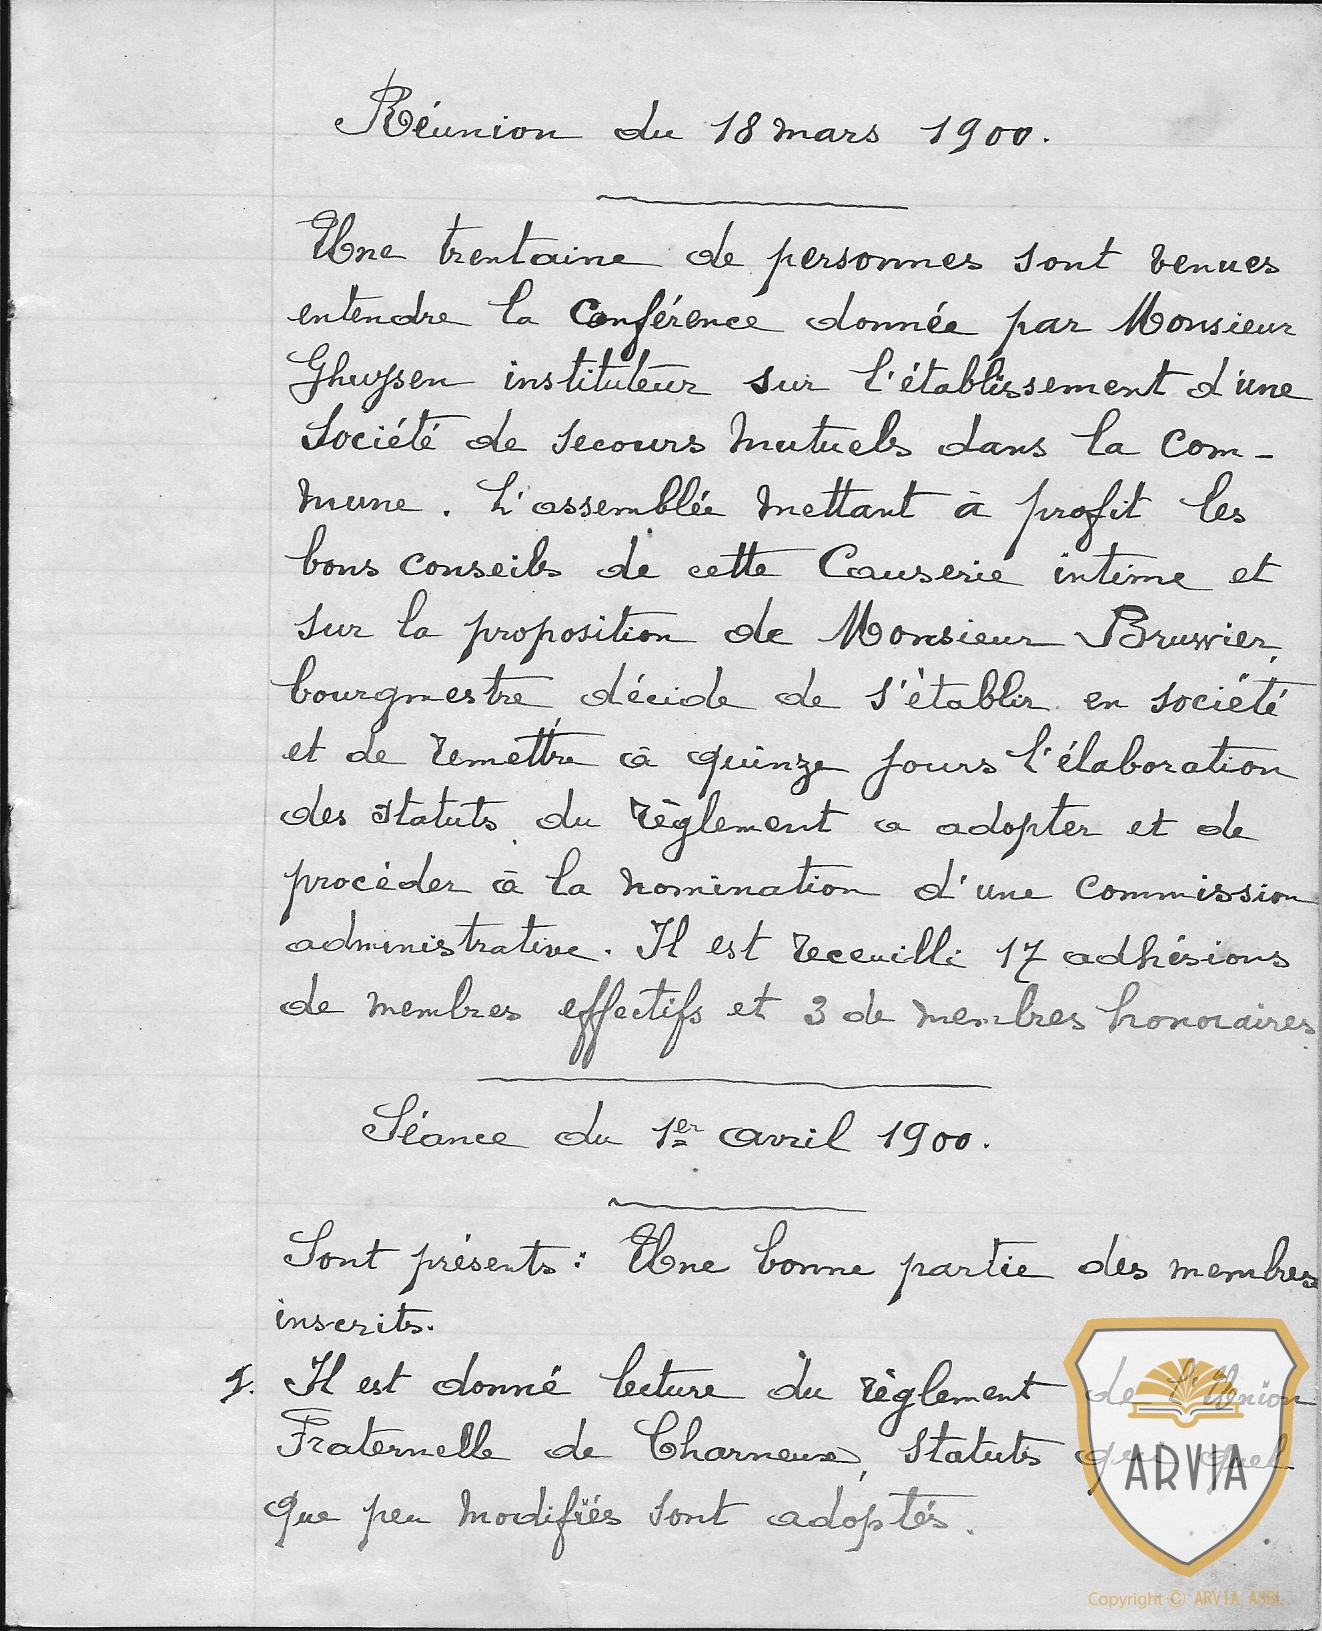 Réunion du 18 mars 1900.
Une trentaine de personnes sont venues
entendre la Conférence donnée par Monsieur
Ghuysen instituteur sur l'établissement d'une
Société de secours mutuels dans la com-
mune. L'assemblée mettant à profit les
bons conseils de cette Causerie intime et
sur la proposition de Monsieur Bruwier,
bourgmestre décide de s'établir en société
et de remettre à quinze jours l'élaboration
des statuts du règlement a adopter et de
procéder à la nomination d'une commission
administrative. Il est receuilli 17 adhésions
de membres effectifs et 3 de membres honoraires.
Séance du 1er avril 1900.
Sont présents: Une bonne partie des membres
inscrits.
1. Il est donné lecture du règlement de l'Union
Fraternelle de Charneux, statuts qui quel
que peu modifiés sont adoptés.
ARVIA
Copyright © ARVIA ASBL